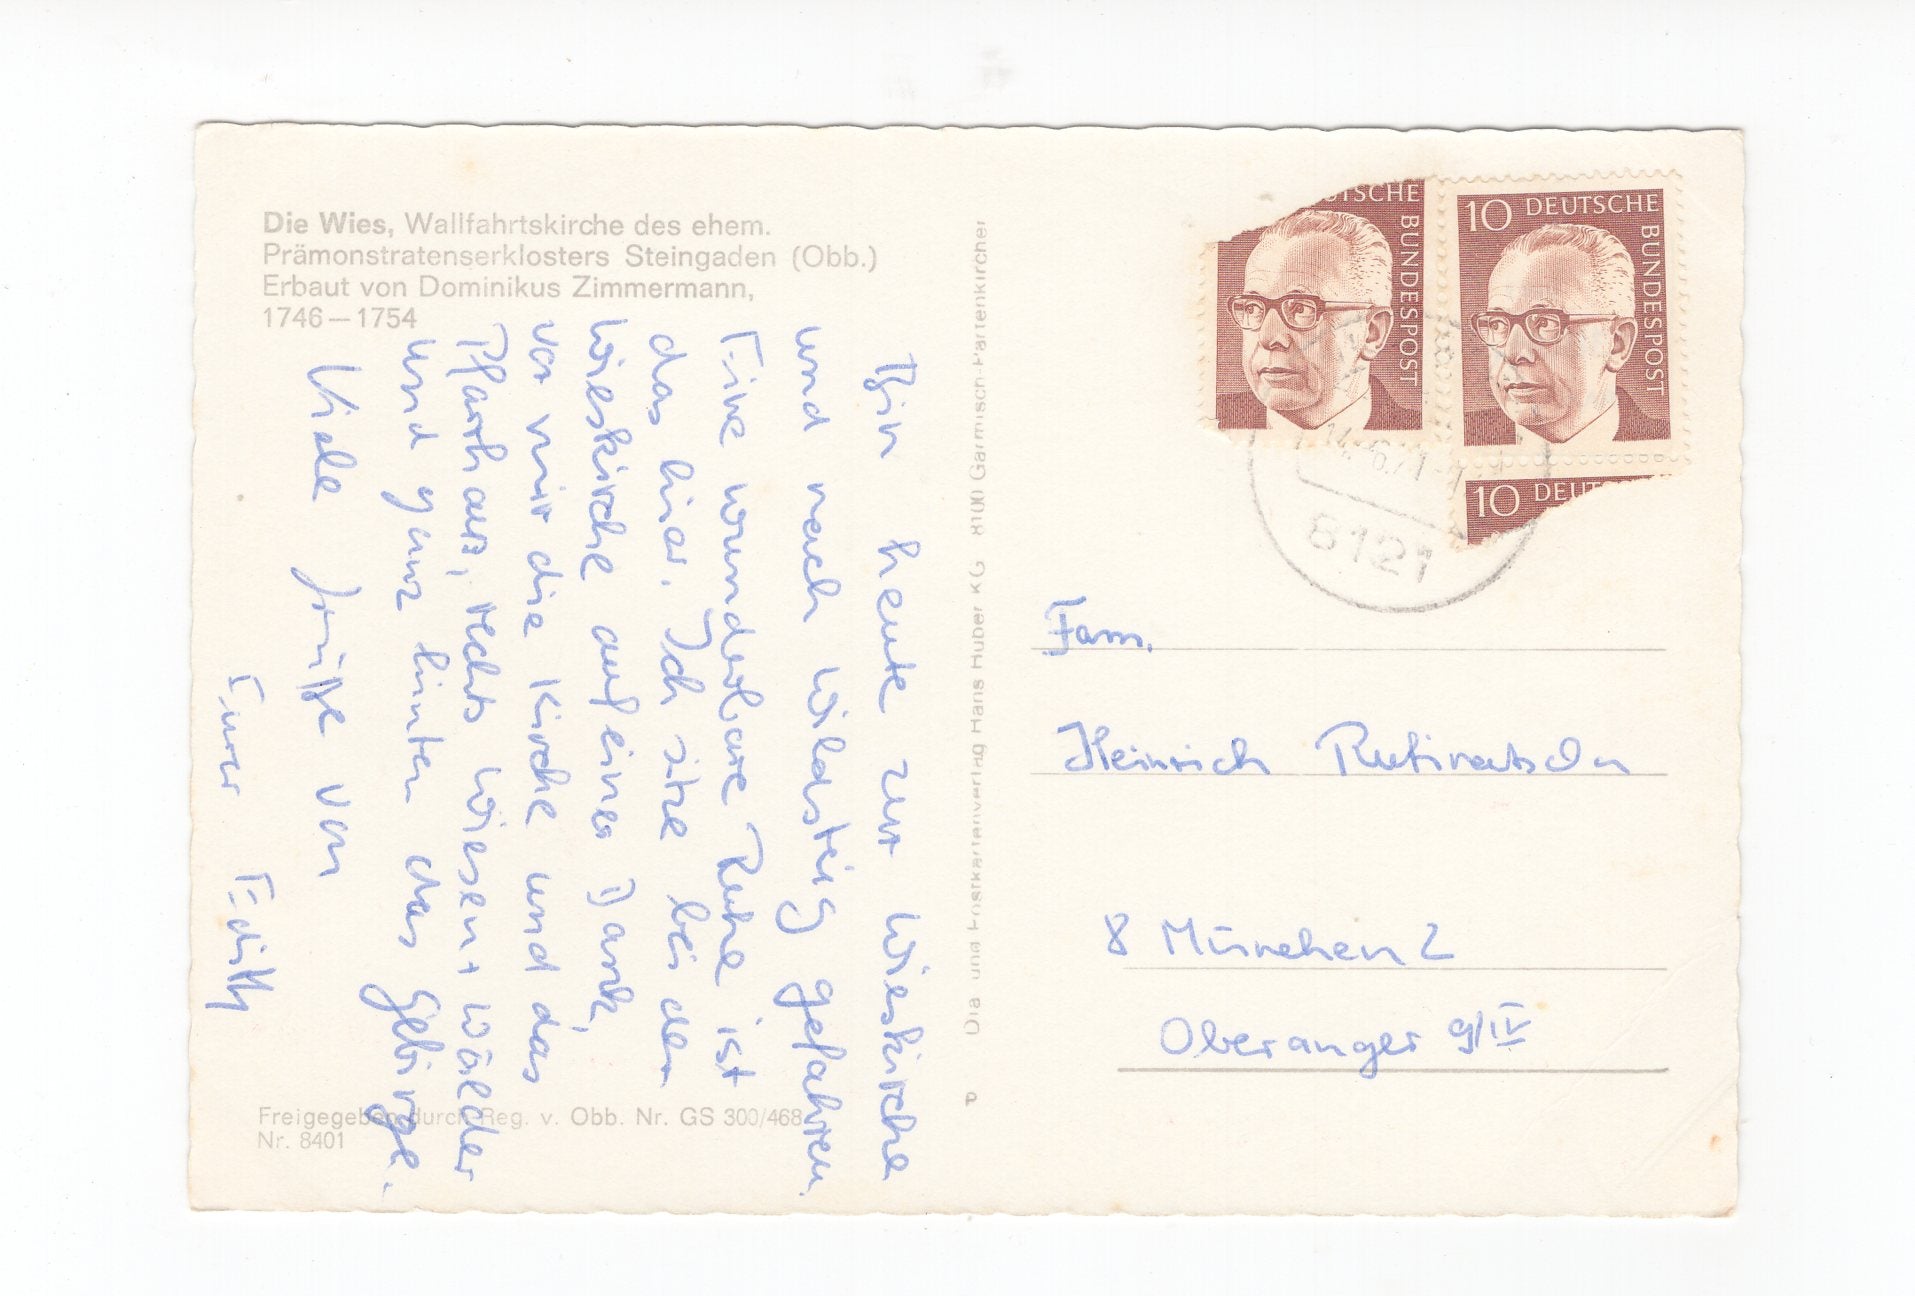 Die Wies, Wallfahrtskirche des ehem.
Prämonstratenserklosters Steingaden (Obb.)
Erbaut von Dominikus Zimmermann,
1746—1754
Bin heute zur Wieskirche
und nach Wildsteig gefahren.
Eine wunderbare Ruhe ist
das hier. Ich sitze bei der
Wieskirche auf einer Bank,
vor mir die Kirche und das
Pfarrhaus, rechts Wiesen + Wälder
und ganz hinten das Gebirge.
Viele Grüße von
Eurer Edith
Freigegeben durch Reg. v. Obb. Nr. GS 300/468
Nr. 8401
Dia und Postkartenverlag Hans Huber KG 8100 Garmisch-Partenkirchen
TSCHE
BUNDESPOST
10 DEUTSCHE
BUNDESPOST
10 DEUTS
14.-6.71
8121
Fam.
Heinrich
8 München 2
Oberanger 9/IV